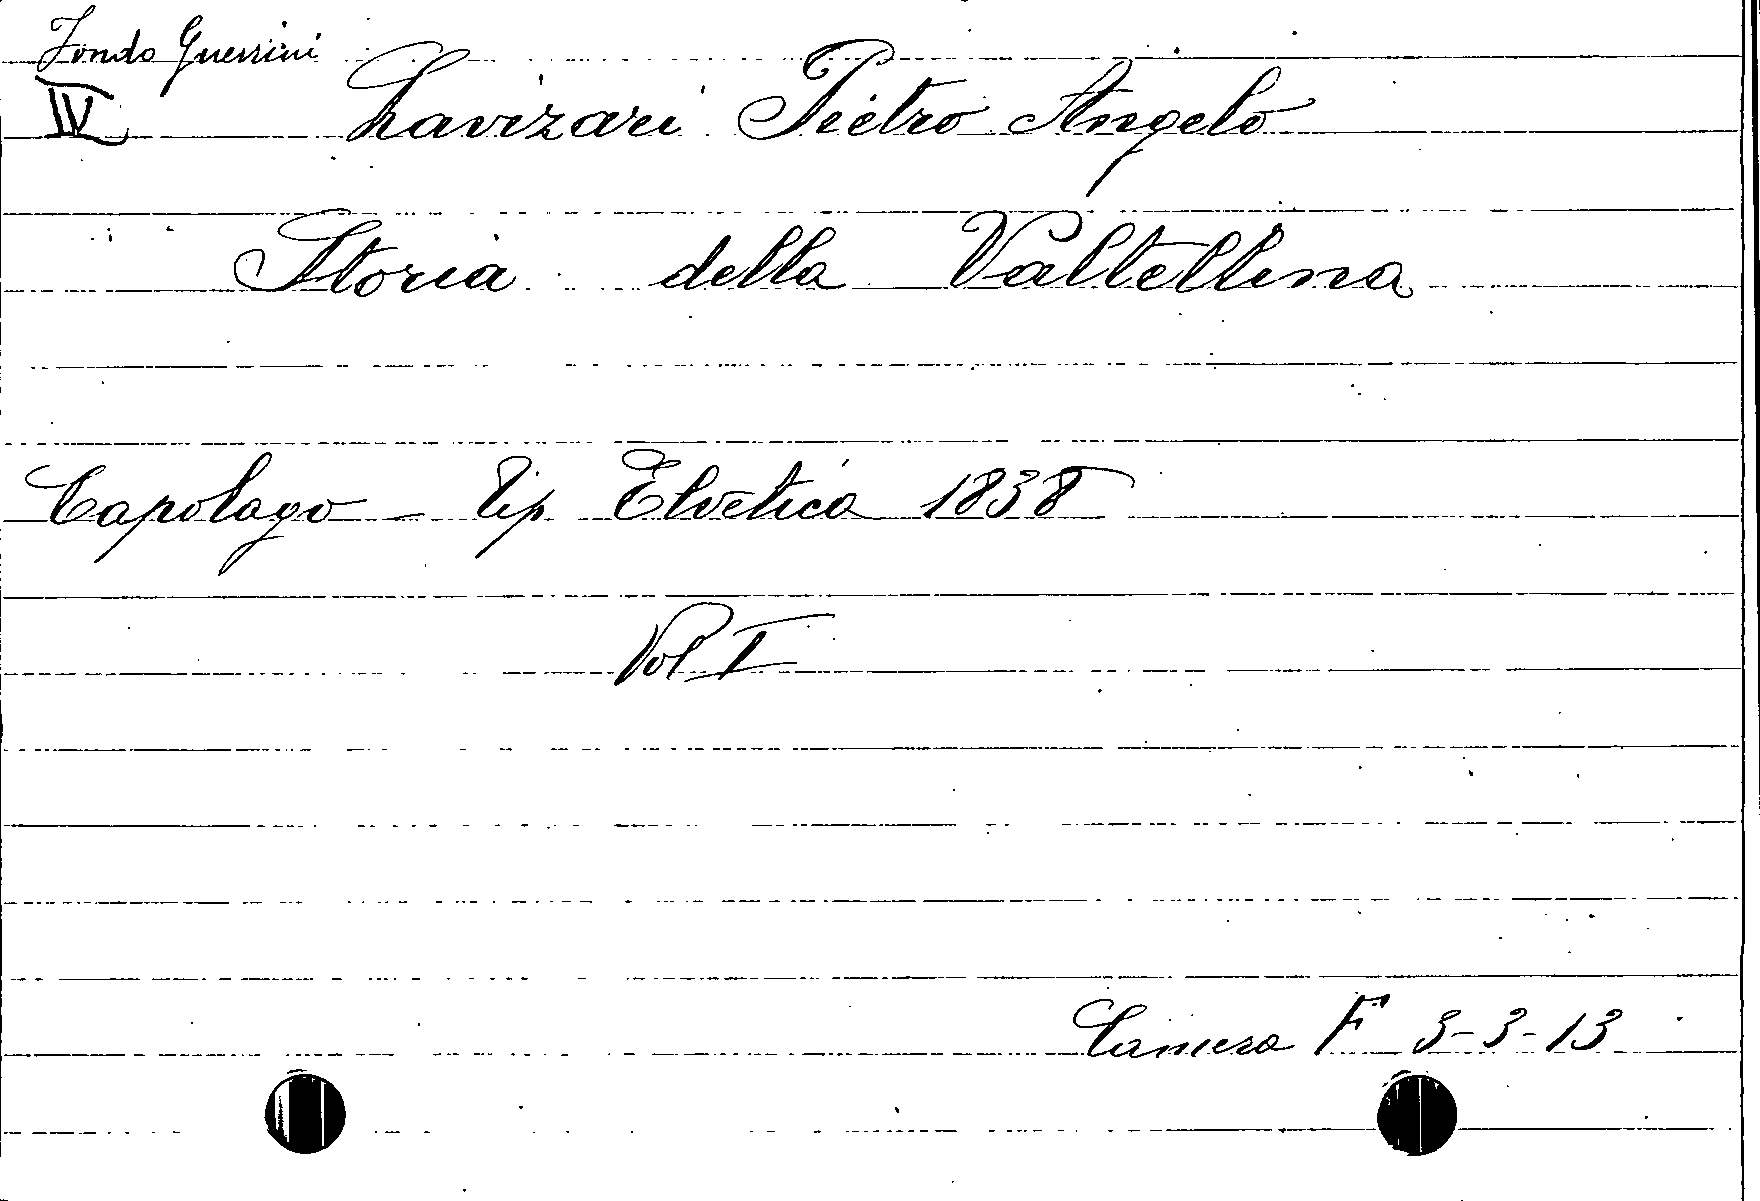 Fondo Guerrini
IV
Lavizari Pietro Angelo
Storia della Valtellina
Capolago - Tip Elvetica 1838
Vol I
Camera F 3-3-13